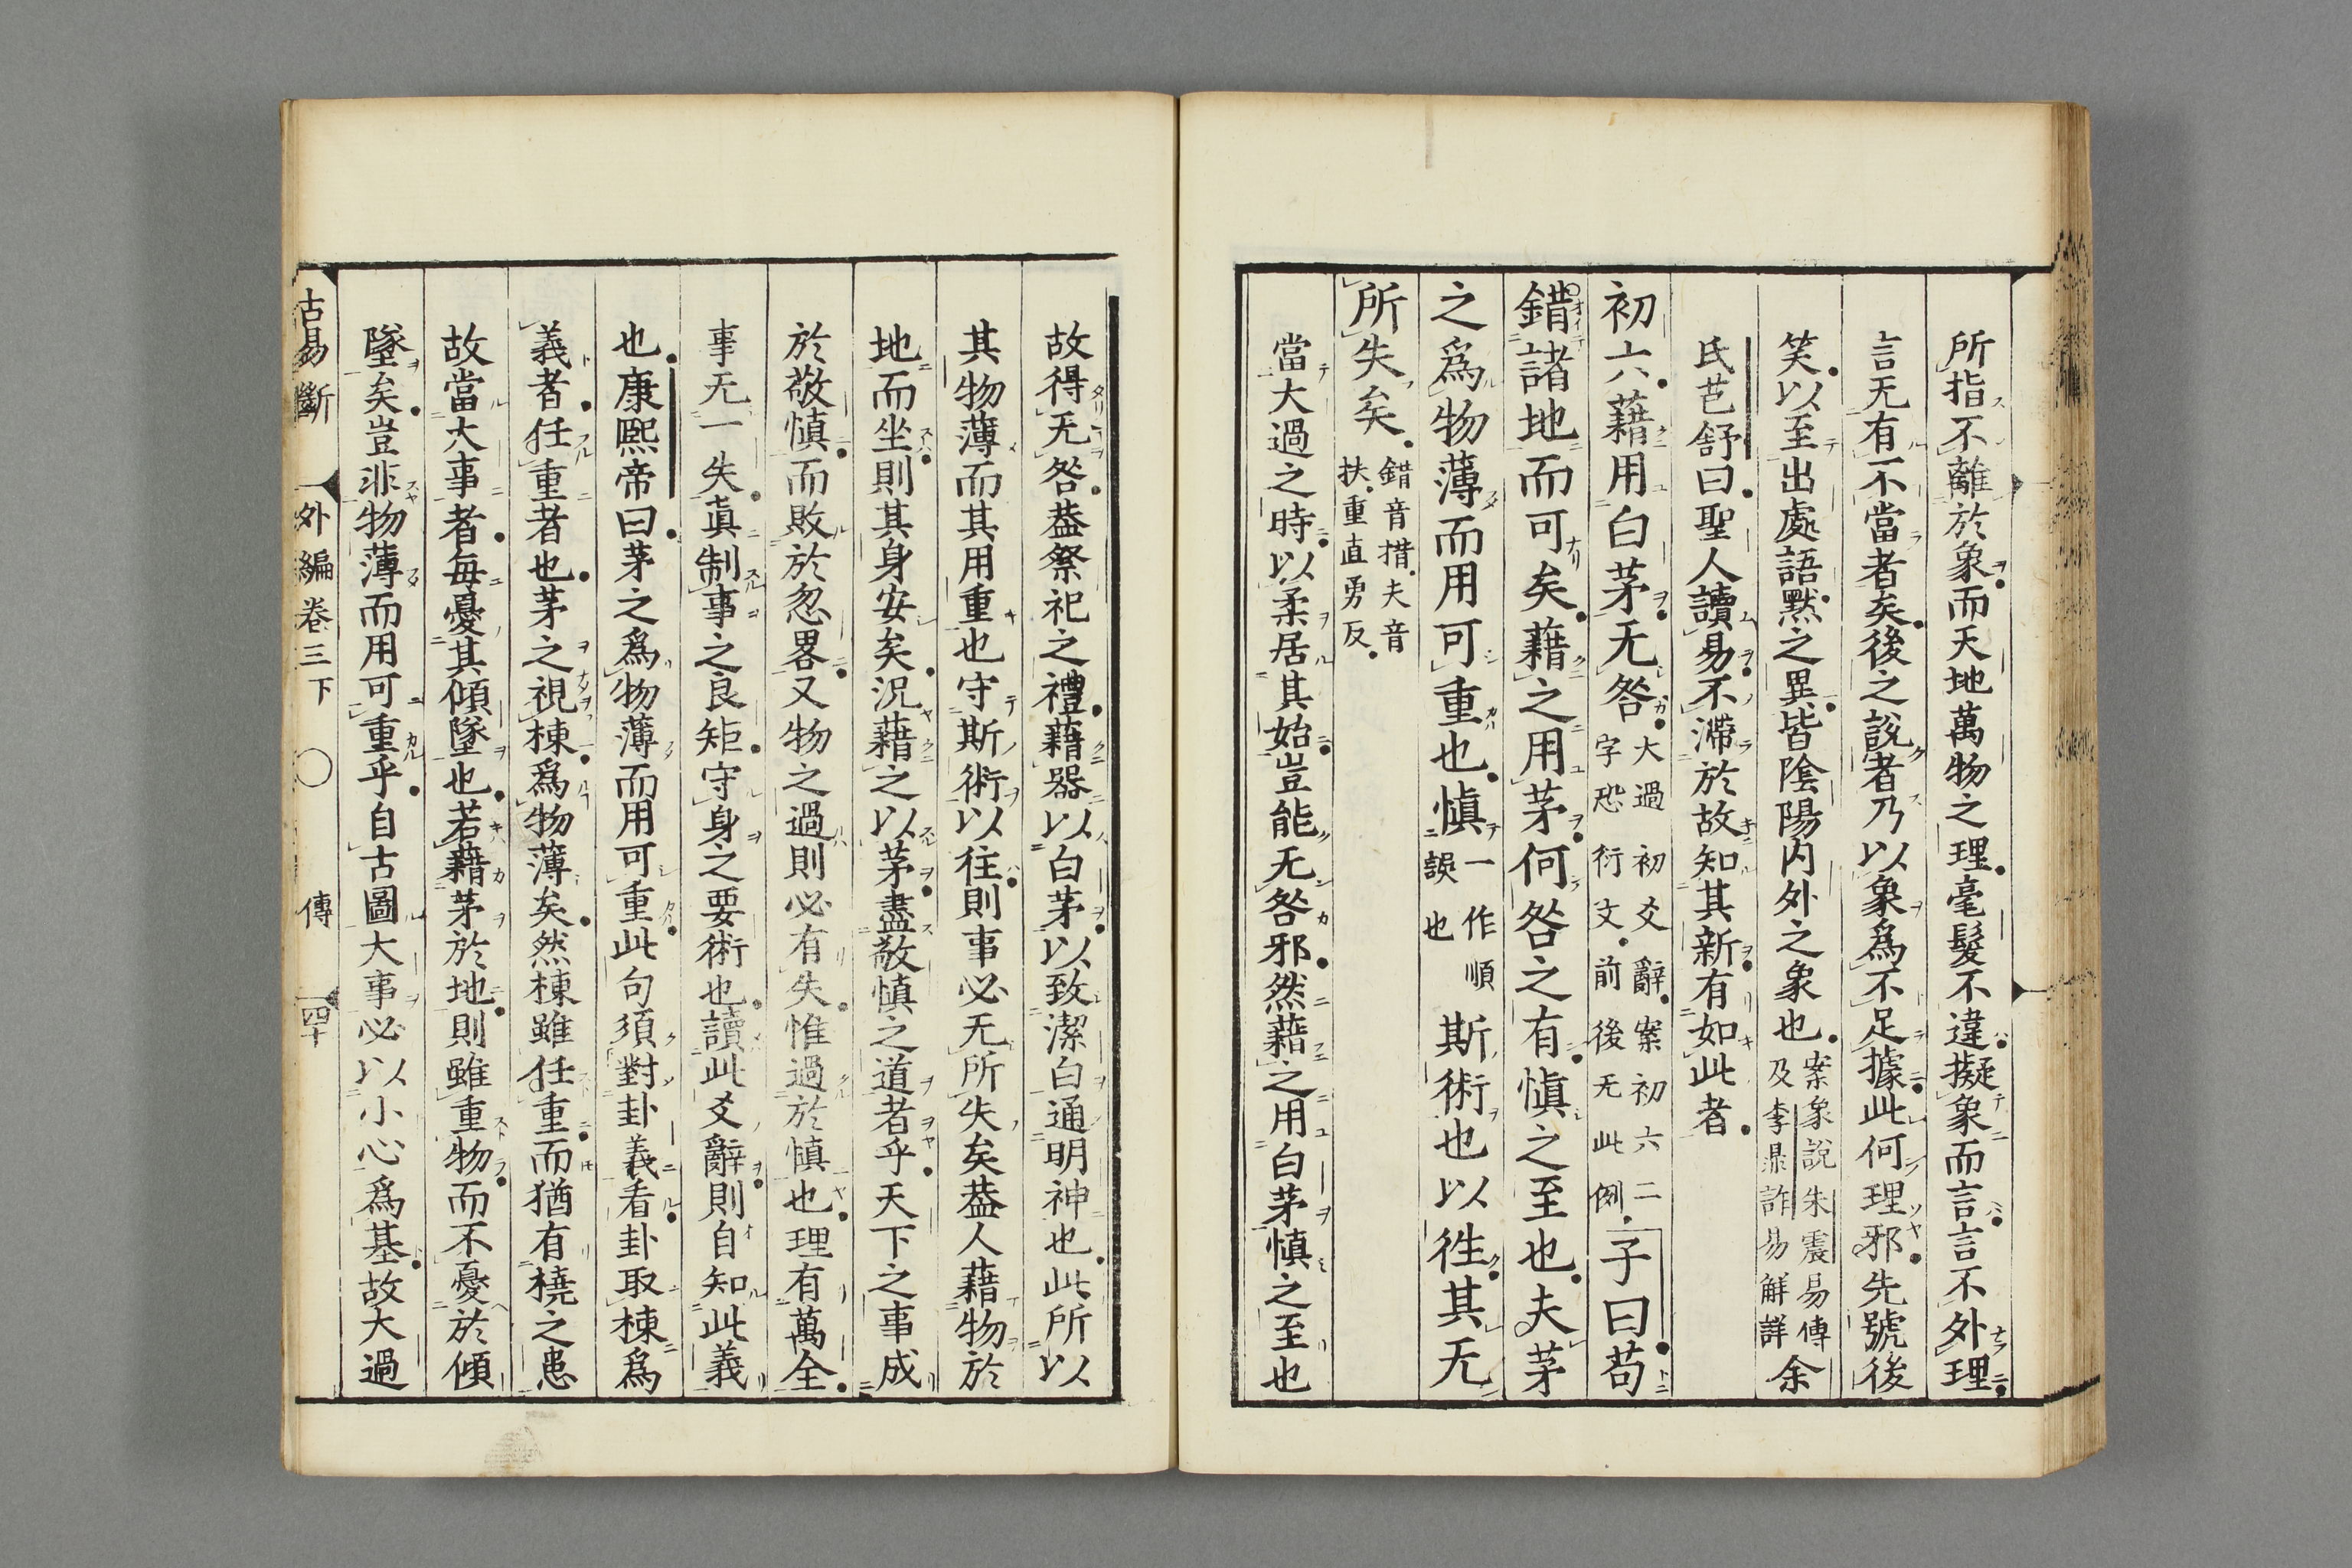 所指不離於象而天地萬物之理毫髮不違擬象而言言不外理
言无有不當者矣後之說者乃以象爲不足據此何理邪先號後
笑以至出處語默之異皆陰陽內外之象也案象說朱震易傳及李鼎詐易解詳余
氏芑舒曰聖人讀易不滯於故知其新有如此者
初六藉用白茅无咎大過初爻辭案初六二字恐衍文前後无此例子曰苟
錯諸地而可矣藉之用茅何咎之有愼之至也夫茅
之爲物薄而用可重也愼一作順誤也斯術也以徃其无
所失矣錯音措夫音扶重直勇反
當大過之時以柔居其始豈能无咎邪然藉之用白茅愼之至也
故得无咎葢祭祀之禮藉器以白茅以致潔白通明神也此所以
其物薄而其用重也守斯術以往則事必无所失矣葢人藉物於
地而坐則其身安矣況藉之以茅盡敬愼之道者乎天下之事成
於敬愼而敗於忽畧又物之過則必有失惟過於愼也理有萬全
事无一失眞制事之良矩守身之要術也讀此爻辭則自知此義
也康熙帝曰茅之爲物薄而用可重此句須對卦義看卦取棟爲
義者任重者也茅之視棟爲物薄矣然棟雖任重而猶有橈之患
故當大事者每憂其傾墜也若藉茅於地則雖重物而不憂於傾
墜矣豈非物薄而用可重乎自古圖大事必以小心爲基故大過
古易斷 外編卷三下 ○ 傳 四十